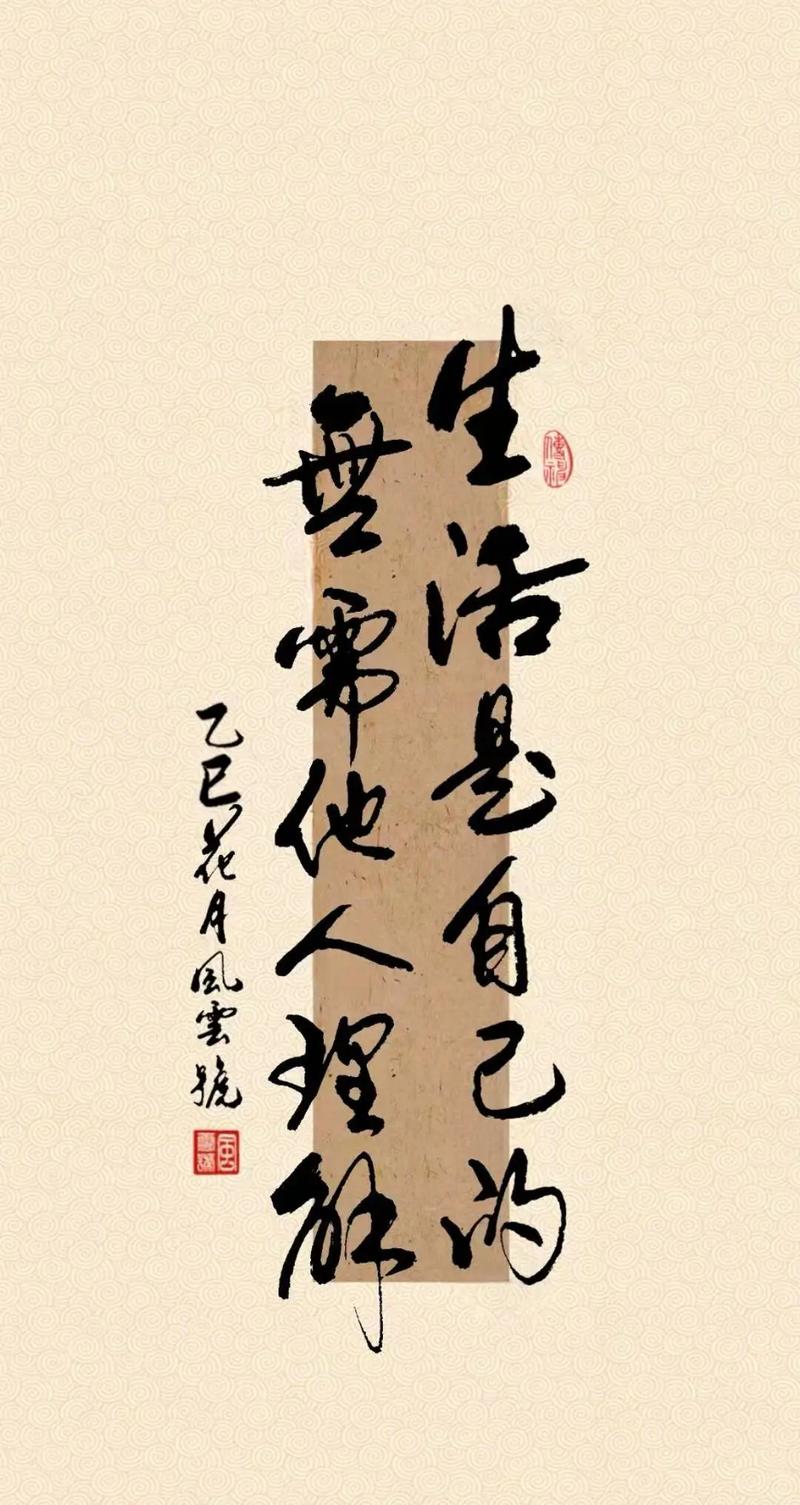 生活是自己的
無需他人理解
乙巳花月風雲號